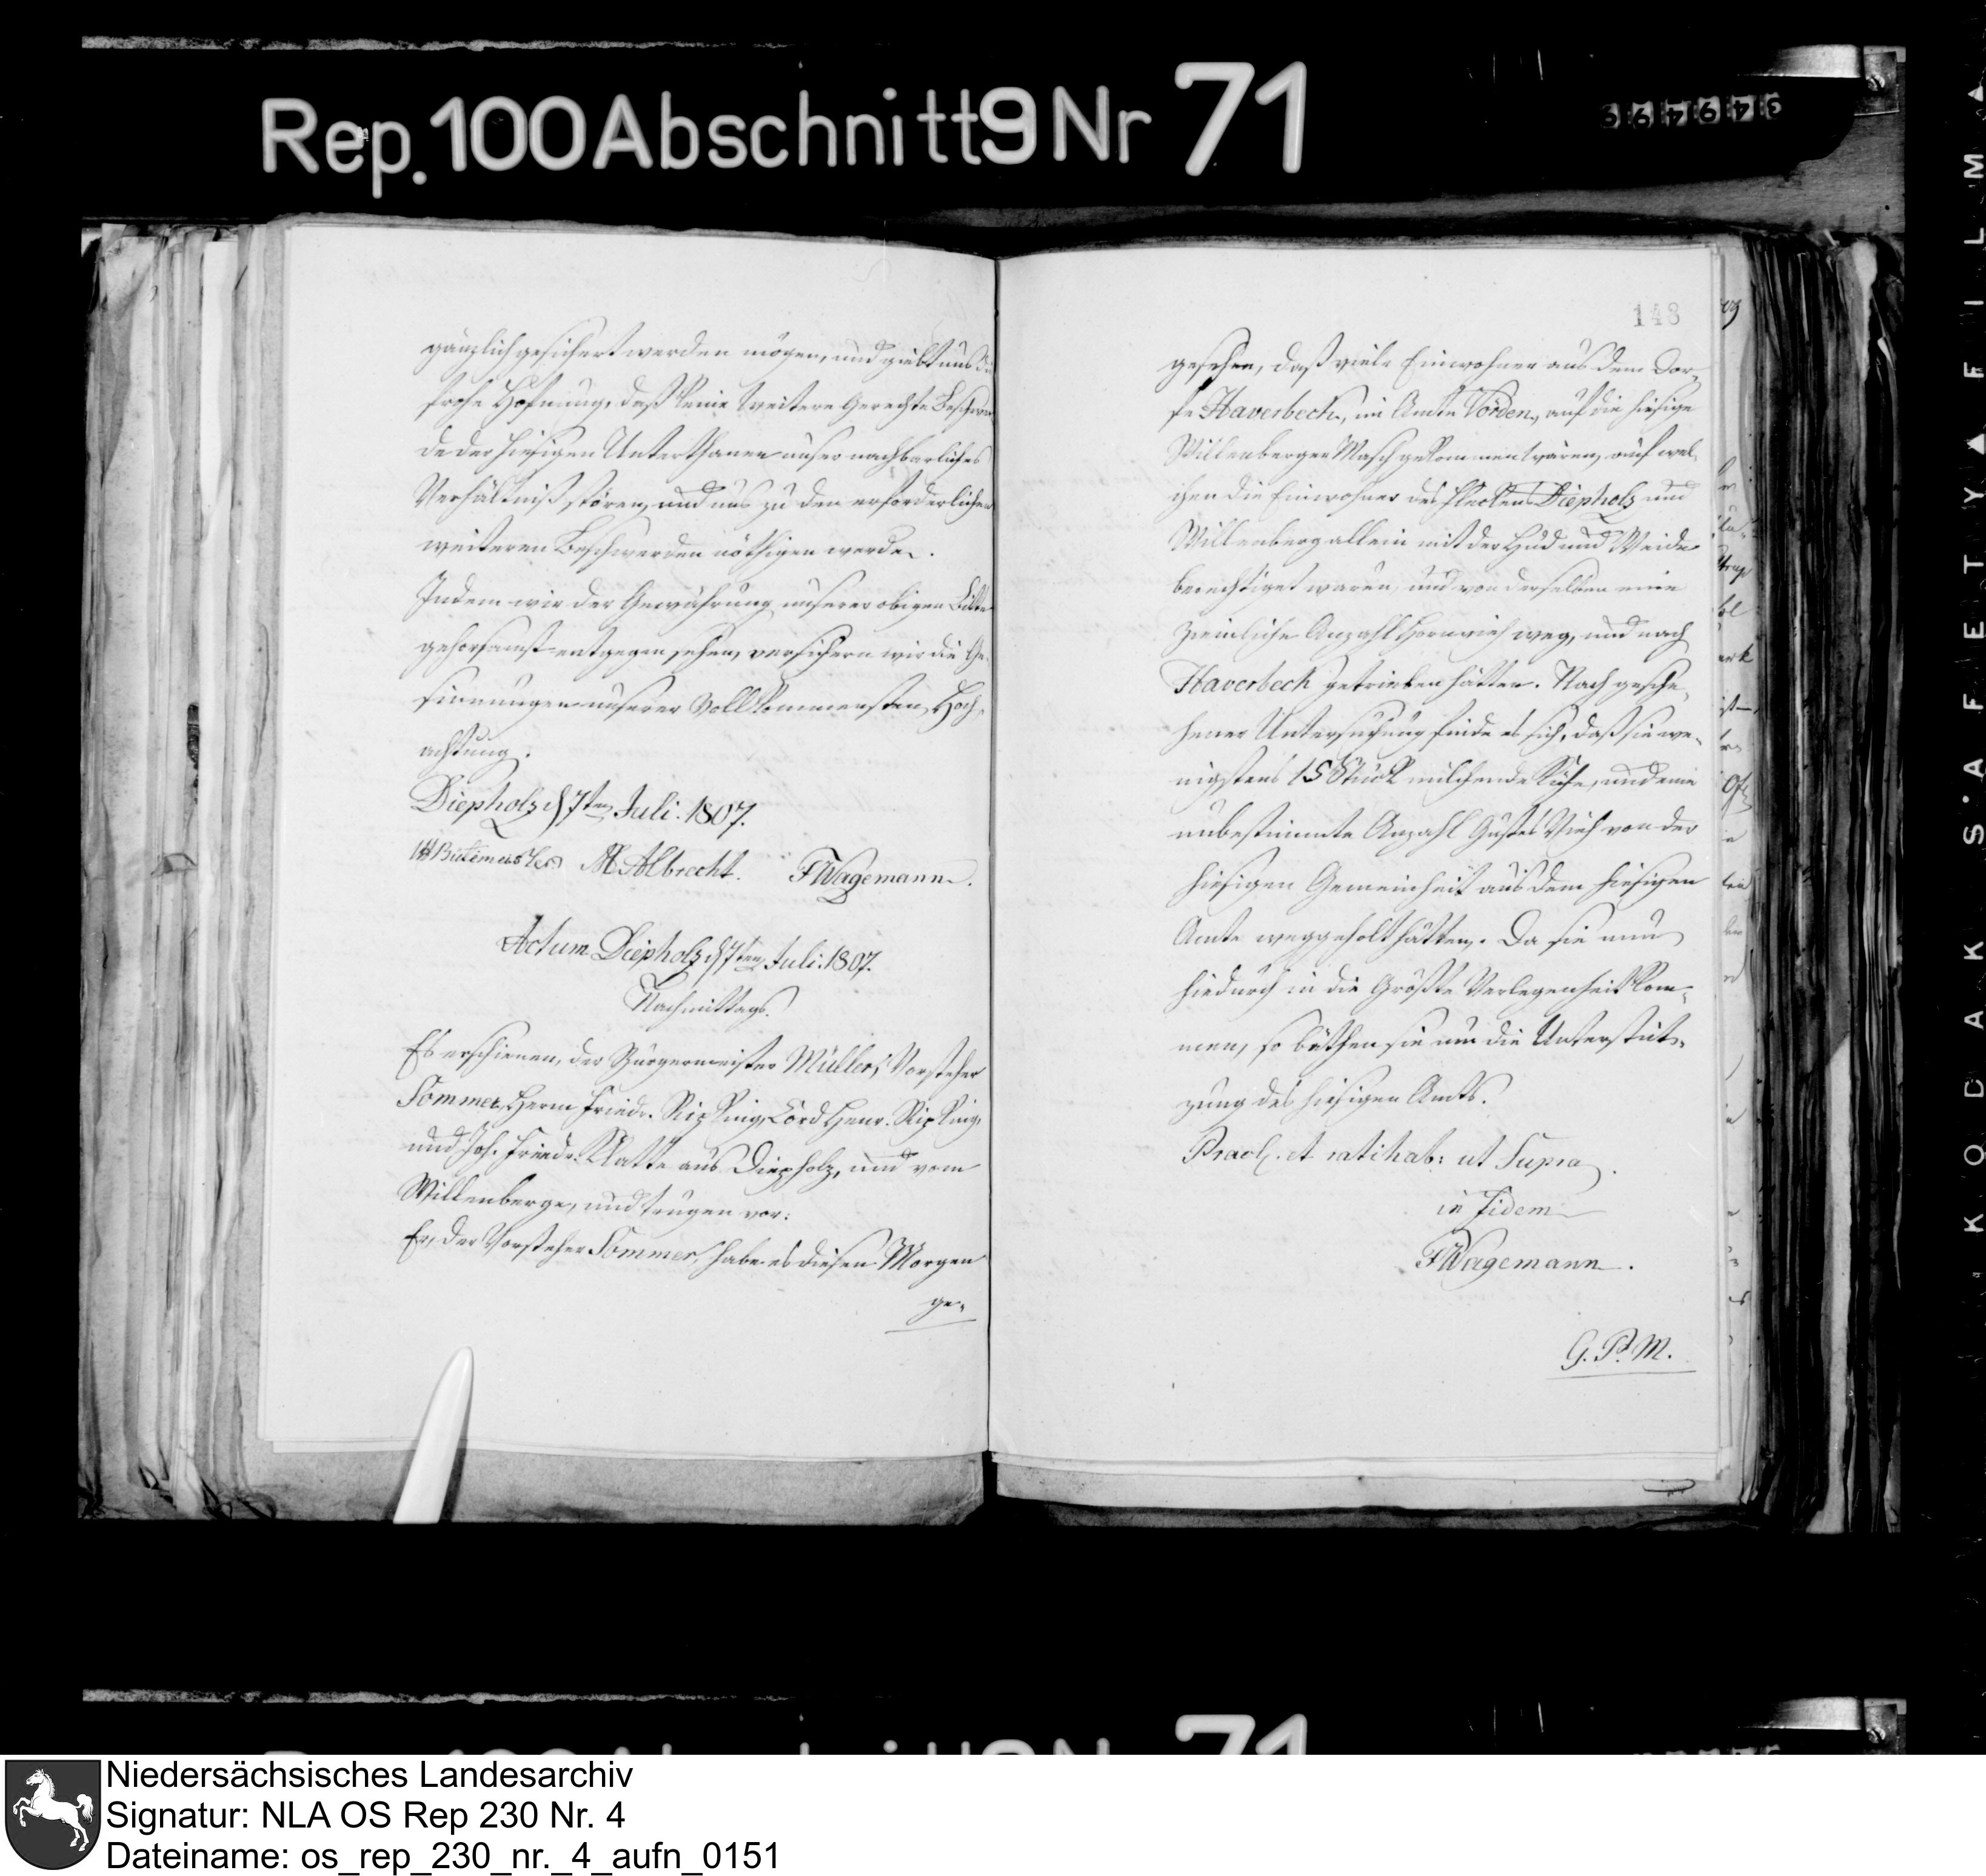 Rep. 100 Abschnitt 9 Nr 71
349499
gänzlich gesichert werden mögen, und giebt uns die
frohe Hofnung, daß keine weitere Gerechte Beschwer
de der hiesigen Unterthanen unser nachbarliches
Verhältniß stören, und uns zu den erforderlichen
weiteren Beschwerden nöthigen werde.
Indem wir der Gewährung unserer obigen Bitte
gehorsamst entgegen sehen, versichern wir die Ge-
sinnungen unserer Vollkommensten Hoch-
achtung.
Diepholz d 7ten Juli. 1807.
Bütemeister M Albrecht. FWagemann.
Actum Diepholz d 7ten Juli. 1807.
Nachmittags.
Es erschienen, der Bürgermeister Müller, Vorsteher
Sommer, Herm Friedr. Kipking, Cord Henr. Kipking,
und Joh. Friedr. Klatte aus Diepholz, und vom
Willenberge, und trugen vor:
Er, der Vorsteher Sommer, habe es diesen Morgen
ge-
148
gesehen, daß viele Einwohner aus dem Dor-
fe Haverbeck, im Amte Vörden, auf die hiesige
Willenberger Masch gekommen wären, auf wel-
chen die Einwohner des Flecken Diepholz und
Willenberg allein mit der Hud und Weide
berechtiget waren, und von derselben eine
ziemliche Anzahl Hornvieh weg, und nach
Haverbeck getrieben hätten. Nach gesche-
hener Untersuchung finde es sich, daß sie we-
nigstens 15 Stück milchende Kühe, und eine
unbestimmte Anzahl Gustes Vieh von der
hiesigen Gemeinheit aus dem hiesigen
Amte weggeholt hätten. Da sie nun
hiedurch in die Größte Verlegenheit kom-
men, so bäthen sie um die Unterstüt-
zung des hiesigen Amts.
Prael. et ratihab: ut Supra.
in fidem
FWagemann.
G. P. M.
KODAK SAFETY FILM
Niedersächsisches Landesarchiv
Signatur: NLA OS Rep 230 Nr. 4
Dateiname: os_rep_230_nr._4_aufn_0151